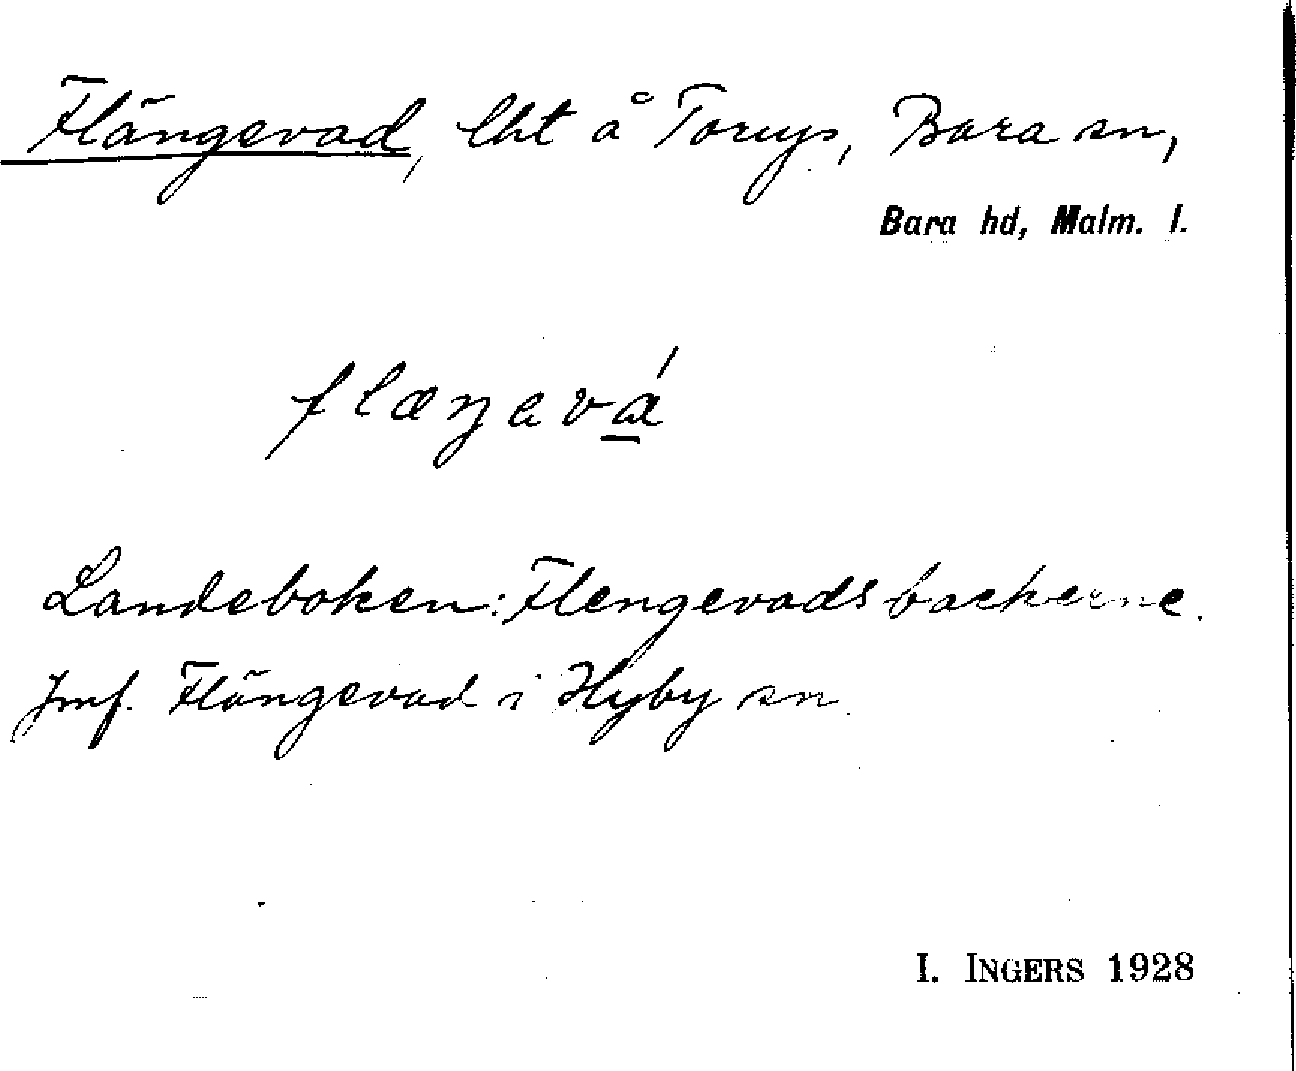 Flängevad, lht å Torup, Bara sn,
Bara hd, Malm. l.
flæŋavá
Landeboken: Flengevads backerne.
Jmf. Flängevad i Hyby sn.
I. INGERS 1928